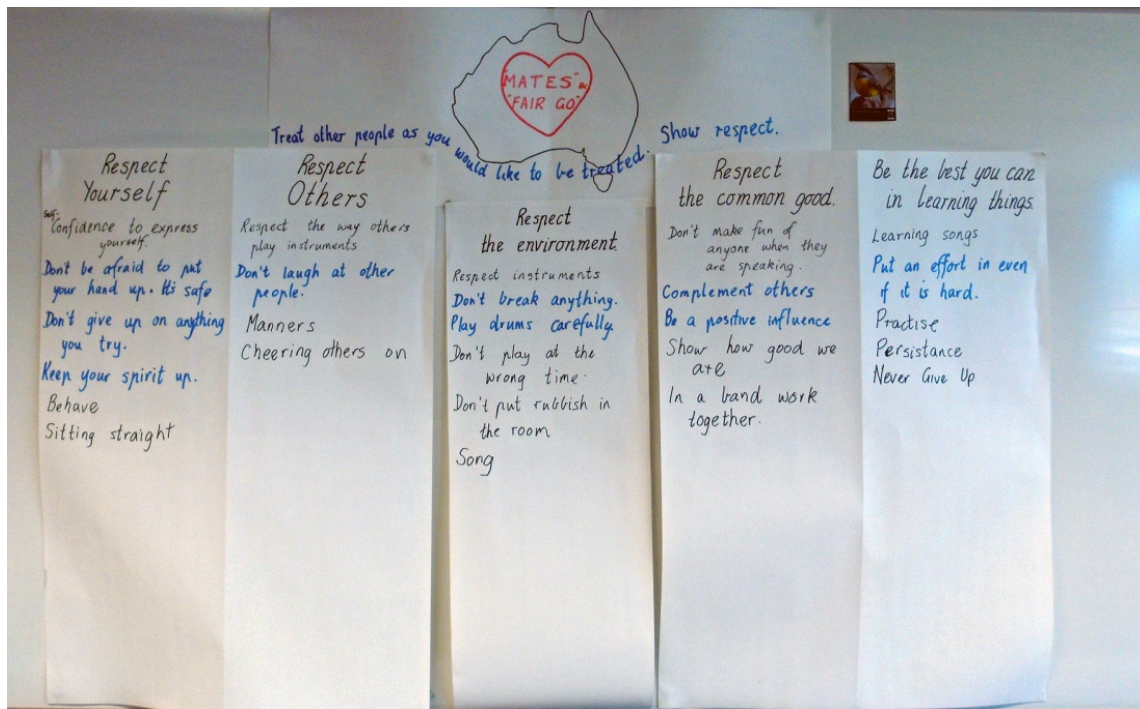 "MATES" &
"FAIR GO"
Treat other people as you would like to be treated. Show respect.
Respect
Yourself
Self-
Confidence to express
yourself.
Don't be afraid to put
your hand up. It's safe
Don't give up on anything
you try.
Keep your spirit up.
Behave
Sitting straight
Respect
Others
Respect the way others
play instruments
Don't laugh at other
people.
Manners
Cheering others on
Respect
the environment.
Respect instruments
Don't break anything.
Play drums carefully.
Don't play at the
wrong time.
Don't put rubbish in
the room
Song
Respect
the common good.
Don't make fun of
anyone when they
are speaking.
Complement others
Be a positive influence
Show how good we
are
In a band work
together.
Be the best you can
in learning things.
Learning songs
Put an effort in even
if it is hard.
Practise
Persistance
Never Give Up